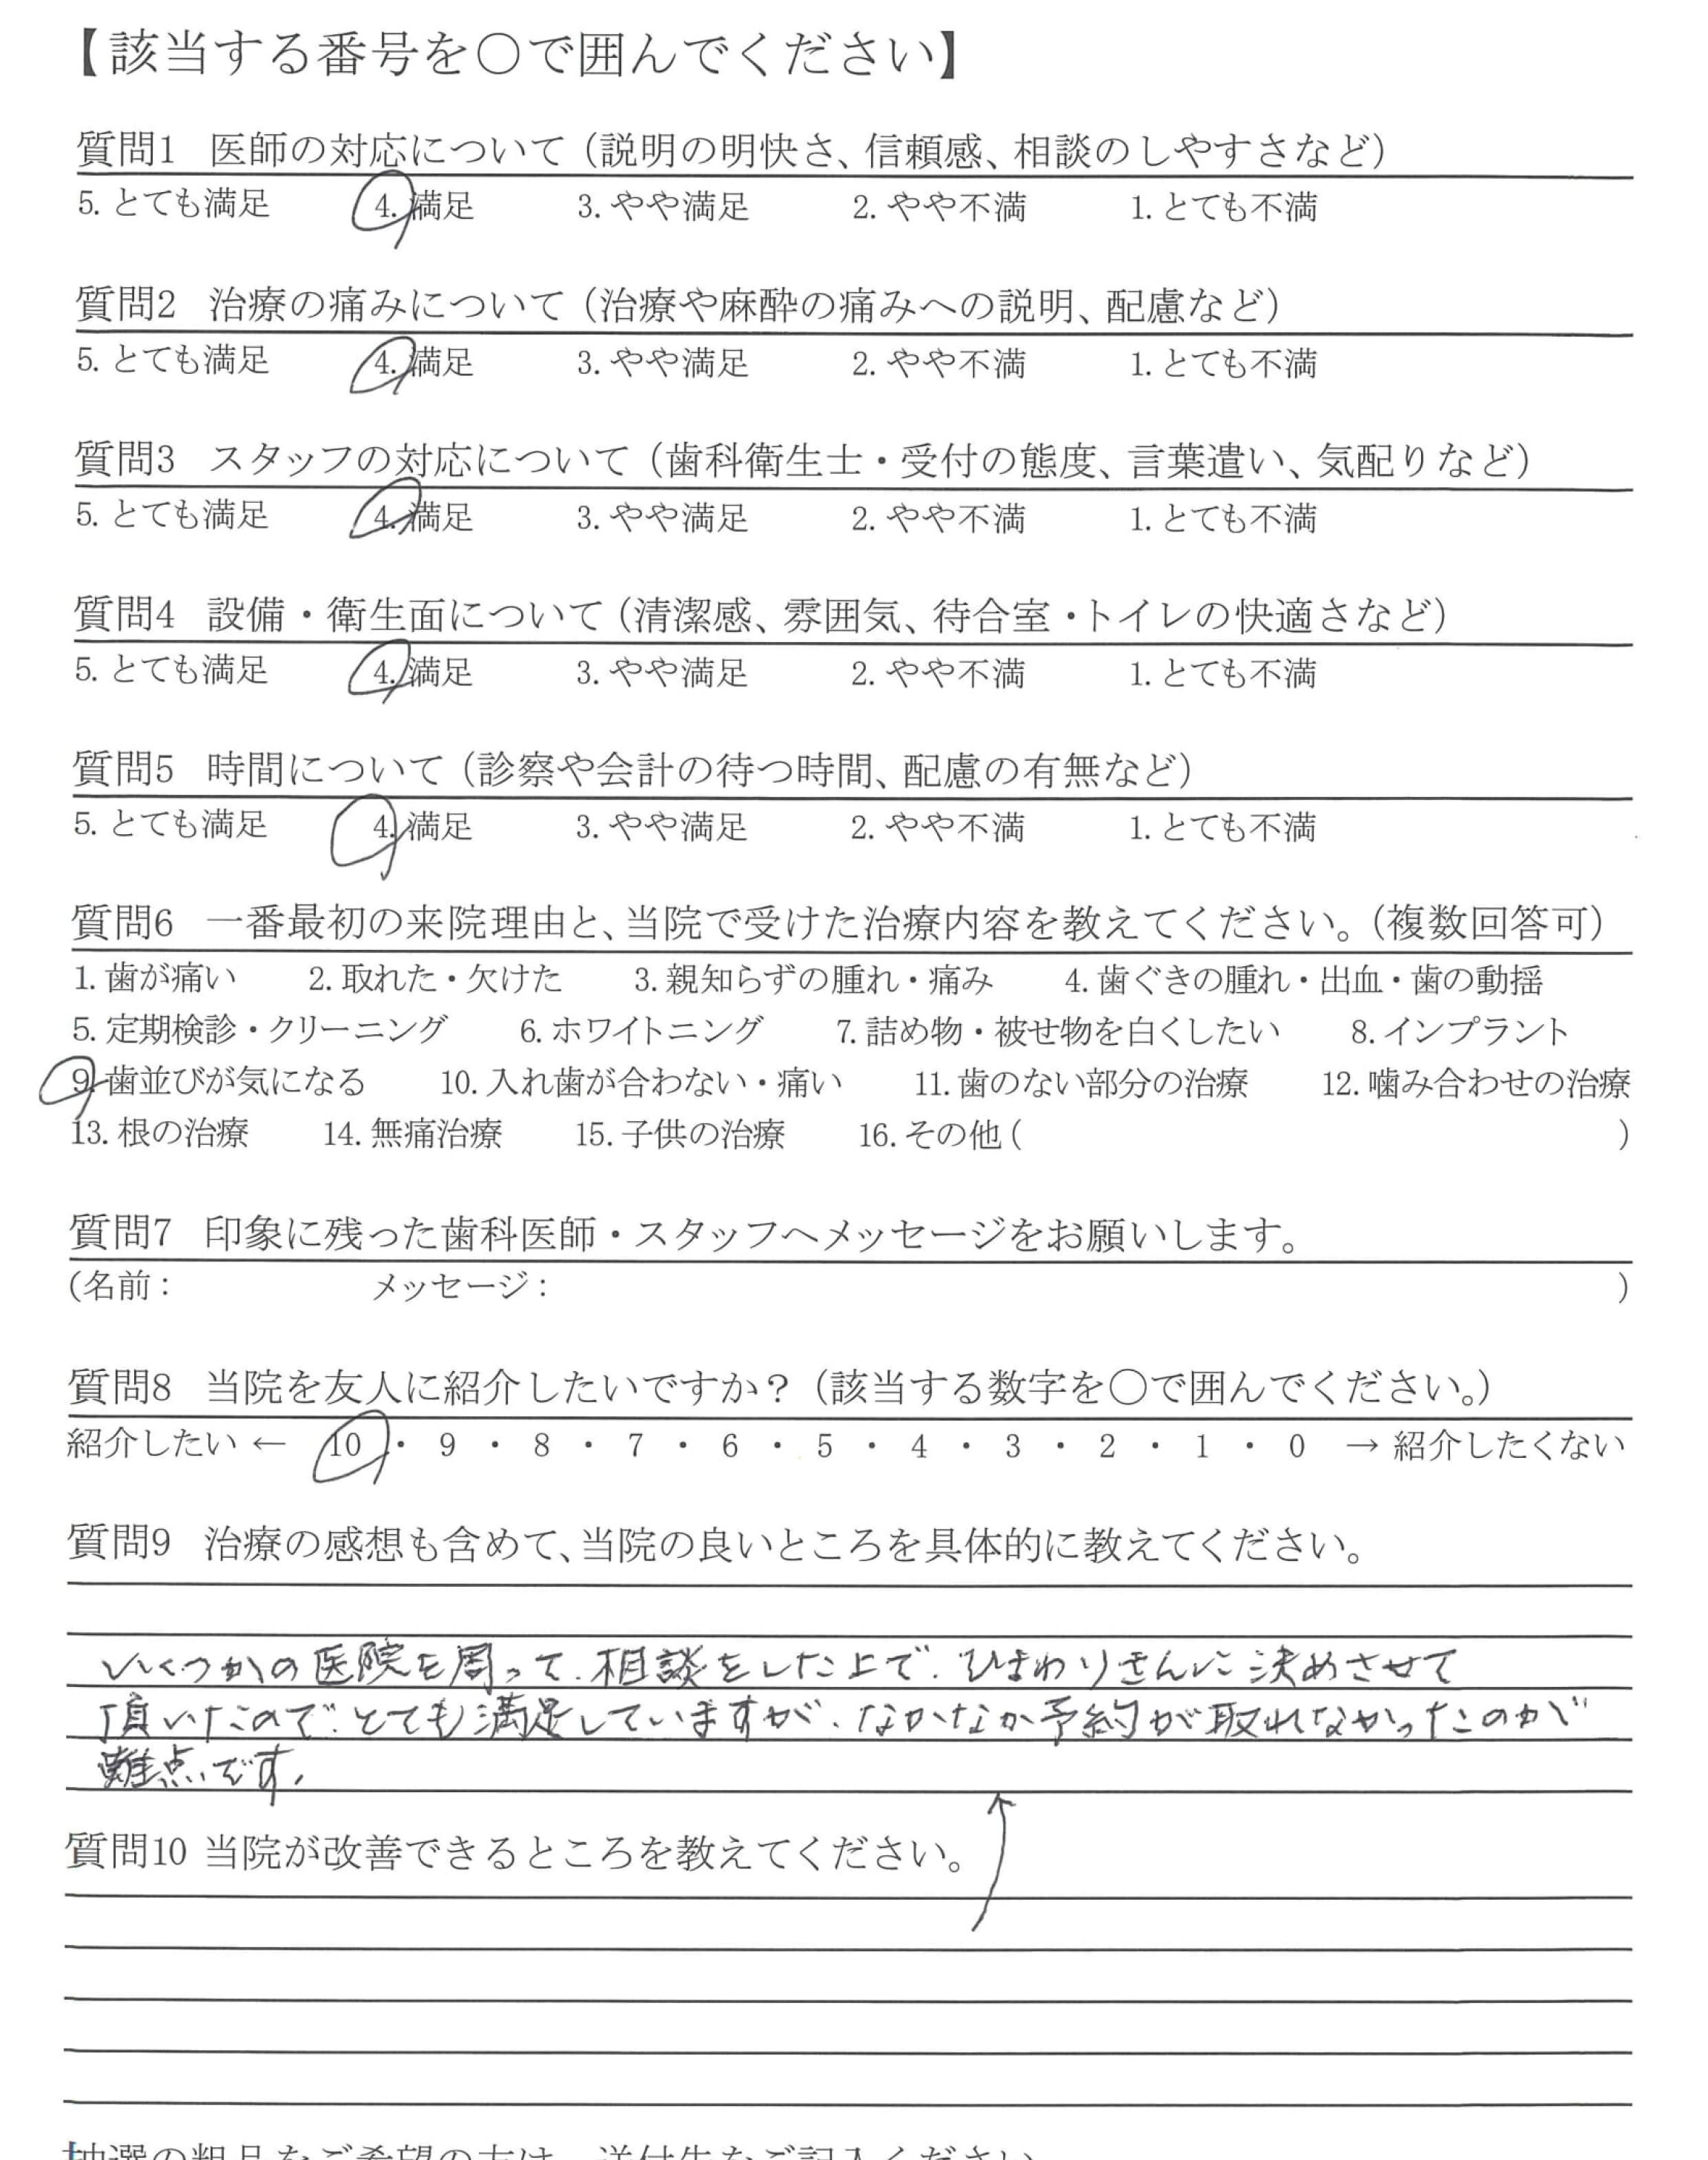 【該当する番号を○で囲んでください】
質問1 医師の対応について（説明の明快さ、信頼感、相談のしやすさなど）
5. とても満足 4. 満足 3. やや満足 2. やや不満 1. とても不満
質問2 治療の痛みについて（治療や麻酔の痛みへの説明、配慮など）
5. とても満足 4. 満足 3. やや満足 2. やや不満 1. とても不満
質問3 スタッフの対応について（歯科衛生士・受付の態度、言葉遣い、気配りなど）
5. とても満足 4. 満足 3. やや満足 2. やや不満 1. とても不満
質問4 設備・衛生面について（清潔感、雰囲気、待合室・トイレの快適さなど）
5. とても満足 4. 満足 3. やや満足 2. やや不満 1. とても不満
質問5 時間について（診察や会計の待つ時間、配慮の有無など）
5. とても満足 4. 満足 3. やや満足 2. やや不満 1. とても不満
質問6 一番最初の来院理由と、当院で受けた治療内容を教えてください。（複数回答可）
1. 歯が痛い 2. 取れた・欠けた 3. 親知らずの腫れ・痛み 4. 歯ぐきの腫れ・出血・歯の動揺
5. 定期検診・クリーニング 6. ホワイトニング 7. 詰め物・被せ物を白くしたい 8. インプラント
9. 歯並びが気になる 10. 入れ歯が合わない・痛い 11. 歯のない部分の治療 12. 噛み合わせの治療
13. 根の治療 14. 無痛治療 15. 子供の治療 16. その他（ ）
質問7 印象に残った歯科医師・スタッフへメッセージをお願いします。
（名前： メッセージ： ）
質問8 当院を友人に紹介したいですか？（該当する数字を○で囲んでください。）
紹介したい ← 10 ・ 9 ・ 8 ・ 7 ・ 6 ・ 5 ・ 4 ・ 3 ・ 2 ・ 1 ・ 0 → 紹介したくない
質問9 治療の感想も含めて、当院の良いところを具体的に教えてください。
いくつかの医院を周って、相談をした上で、ひまわりさんに決めさせて
頂いたので、とても満足していますが、なかなか予約が取れなかったのがが
難点です。
質問10 当院が改善できるところを教えてください。
↑
抽選の粗品をご希望の方は、送付先をご記入ください